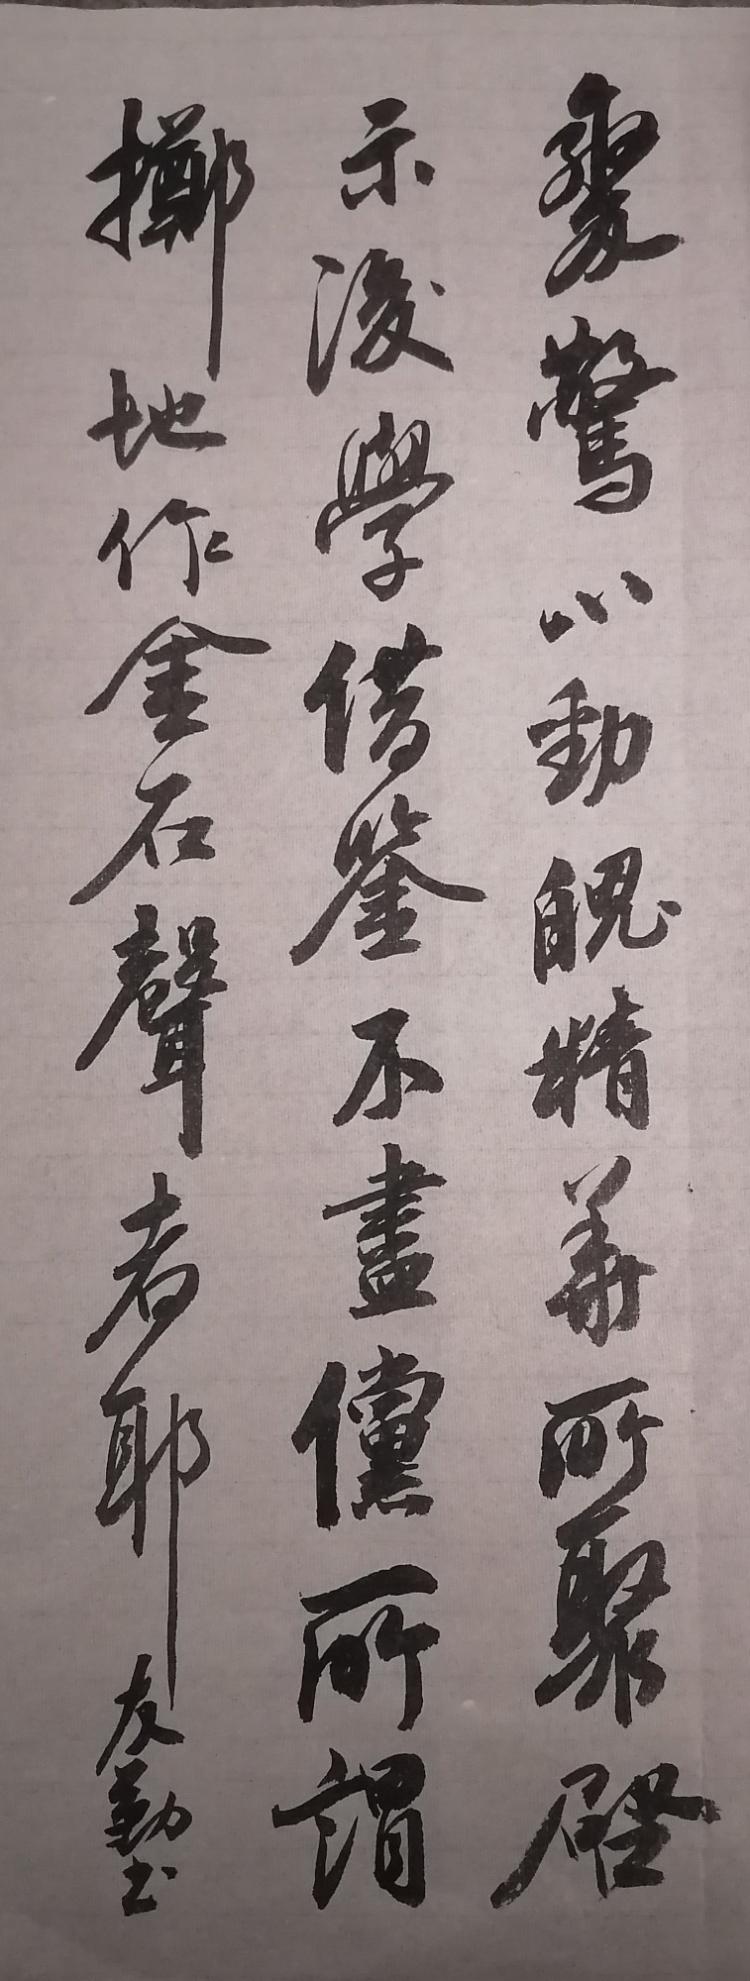 驚心動魄精華所聚啓
示後學借鑒不盡儻所謂
擲地作金石聲者耶
友勤书